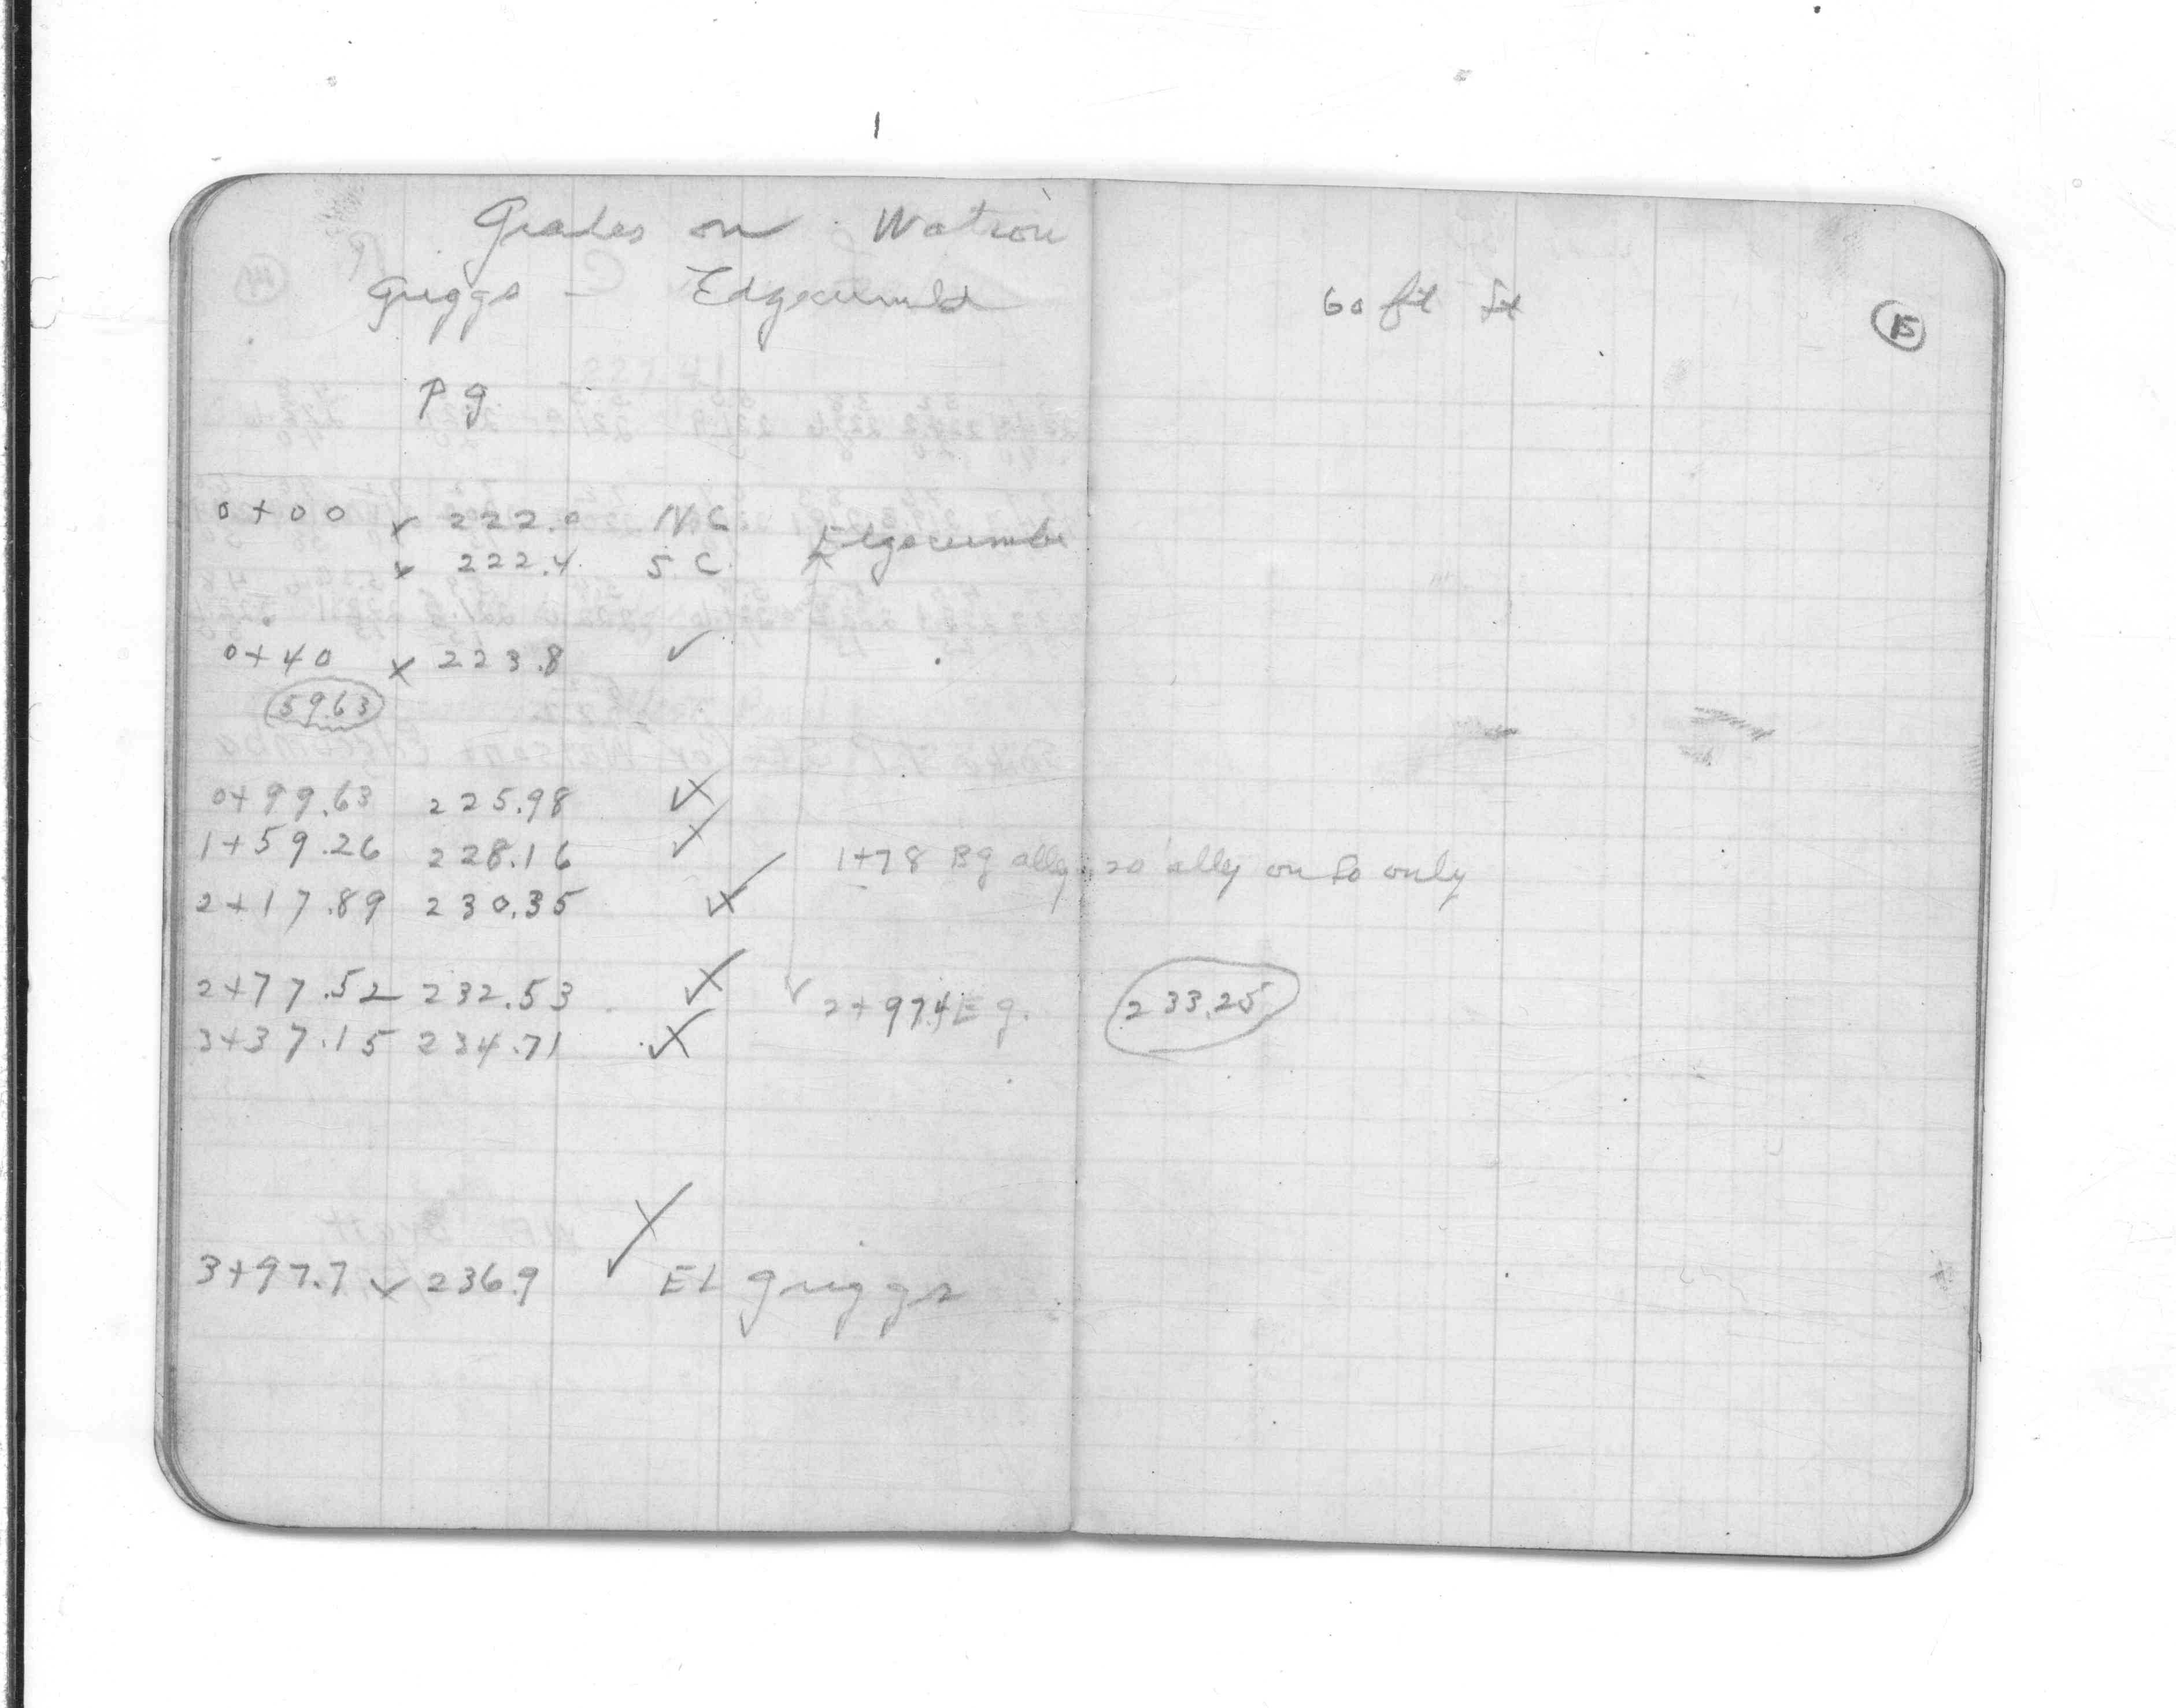 Grades on Watson
Griggs - Edgecumbe
60 ft St
15
Pg
0+00 222.0 N.C.
Edgecumbe
222.4 S.C.
0+40 x 223.8 ✓
59.63
0+99.63 225.98
1+59.26 228.16
1+78 Bg alley 20' alley on So only
2+17.89 230.35
2+77.52 232.53
✓ 2+97.4 Eg. 233.25
3+37.15 234.71
3+97.7 ✓ 236.9 ✓ EL Griggs